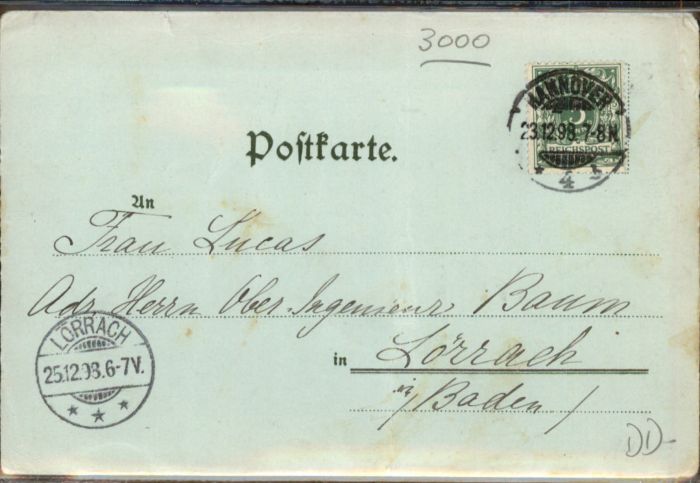 3000
HANNOVER
23.12.98. 7-8 N.
* 4 b
5
REICHSPOST
Postkarte.
An
Frau Lucas
Adr. Herrn Ober-Ingenieur Baum
in Lörrach
in /Baden/
LÖRRACH
25.12.98.6-7V.
* * *
DD-